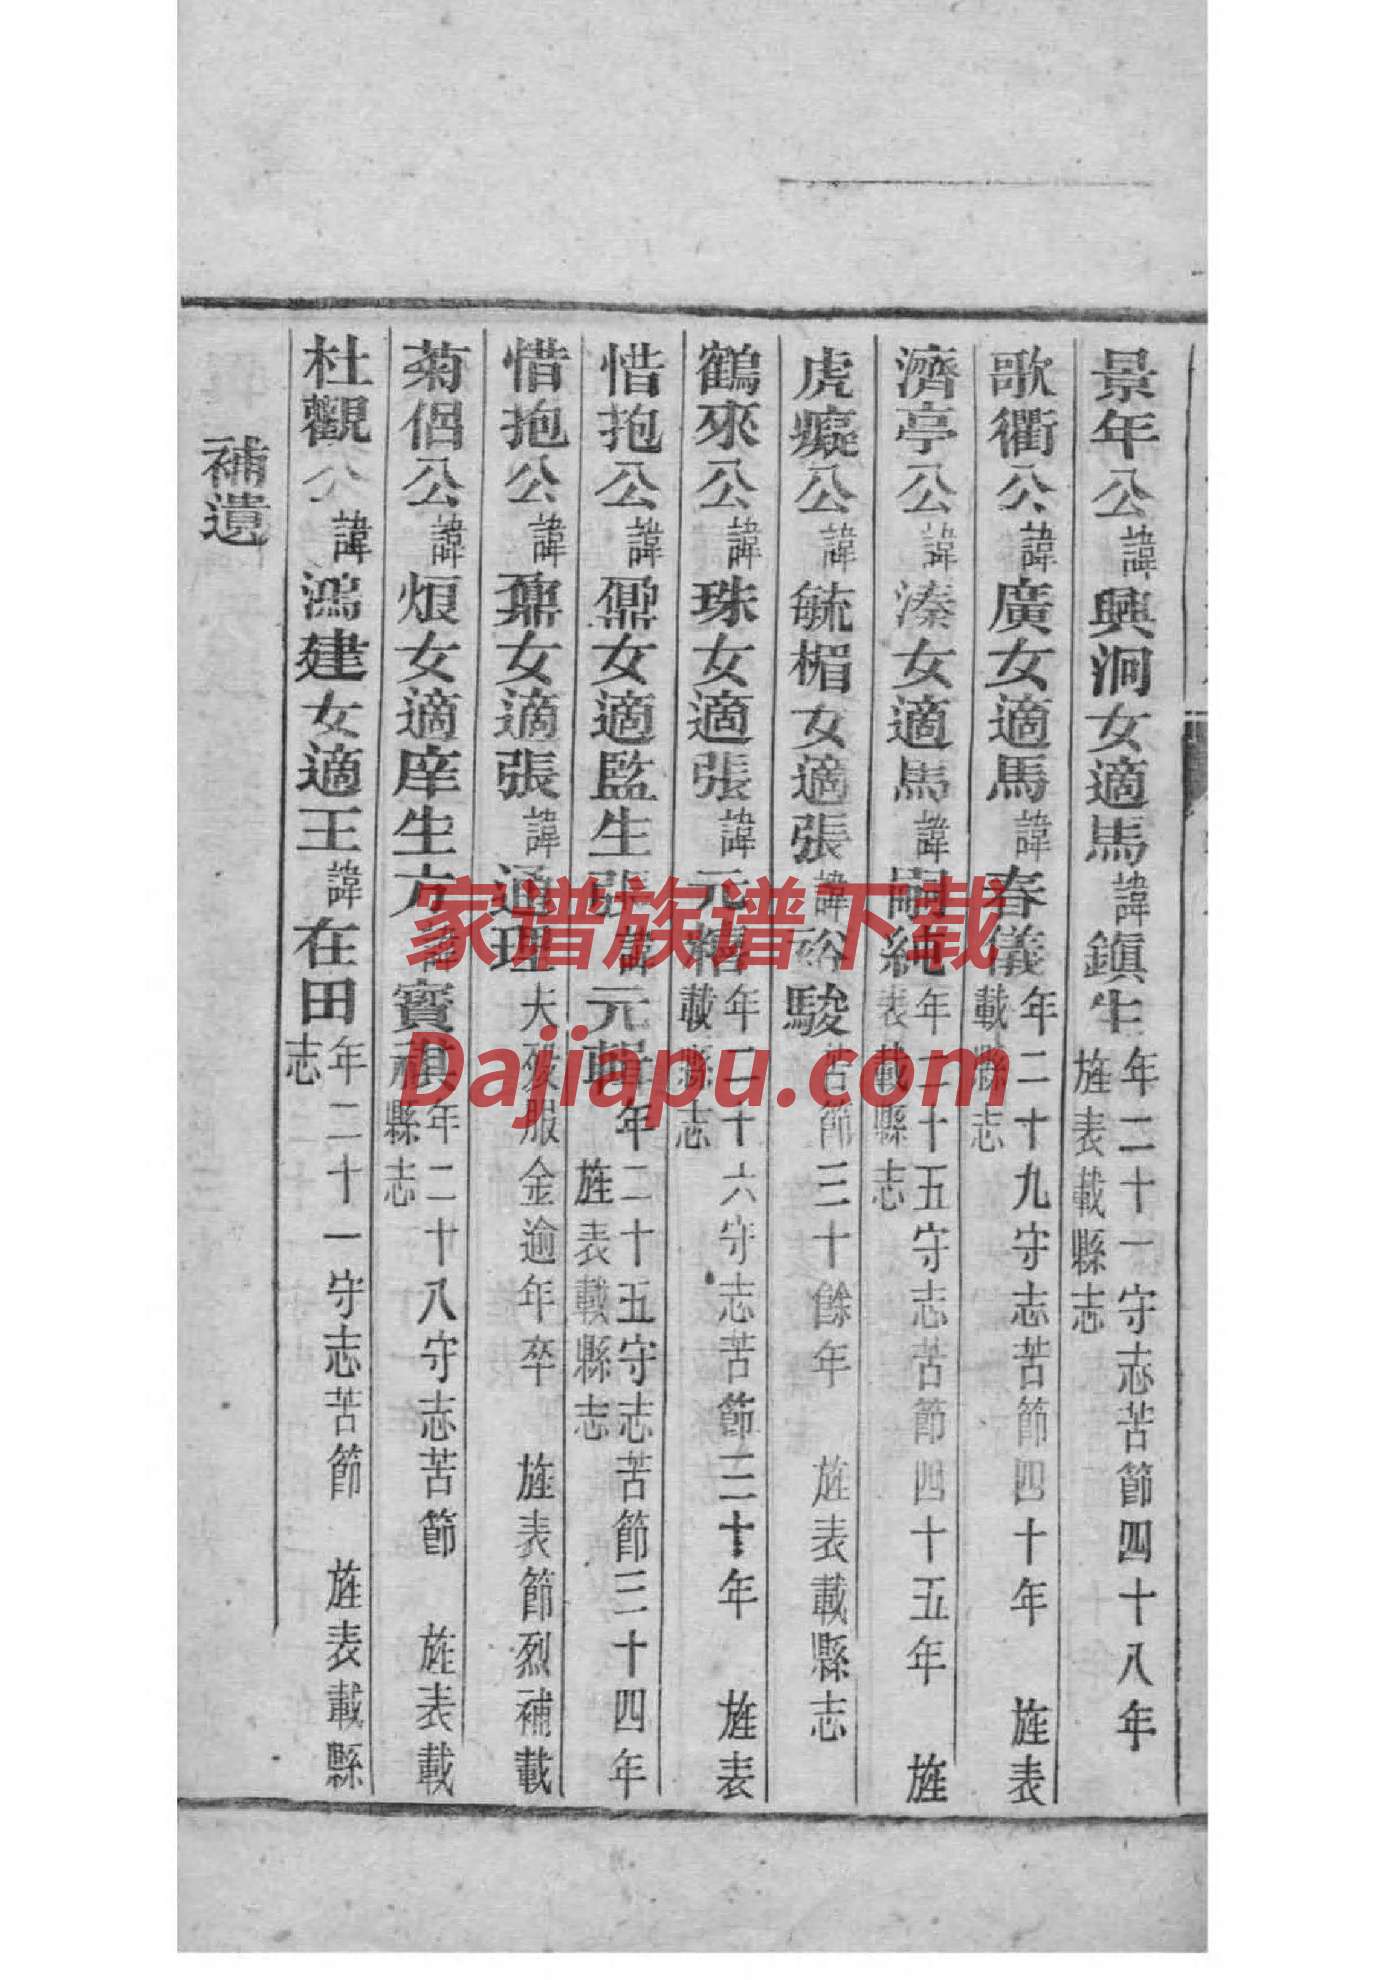 景年公諱興泂女適馬諱鎮生年二十一守志苦節四十八年旌表載縣志
歌衢公諱廣女適馬諱春儀年二十九守志苦節四十年 旌表載縣志
濟亭公諱溱女適馬諱嗣純年二十五守志苦節四十五年 旌表載縣志
虎癡公諱毓楣女適張諱 駿苦節三十餘年 旌表載縣志
鶴來公諱珠女適張諱元 年二十六守志苦節三十年 旌表載縣志
惜抱公諱鼐女適監生張 元輯年二十五守志苦節三十四年旌表載縣志
惜抱公諱鼐女適張諱通理大歿服金逾年卒 旌表節烈補載
菊侶公諱烺女適庠生方諱寶禛年二十八守志苦節 旌表載縣志
杜觀公諱鴻建女適王諱在田年二十一守志苦節 旌表載縣志
補遺
家谱族谱下载
Dajiapu.com